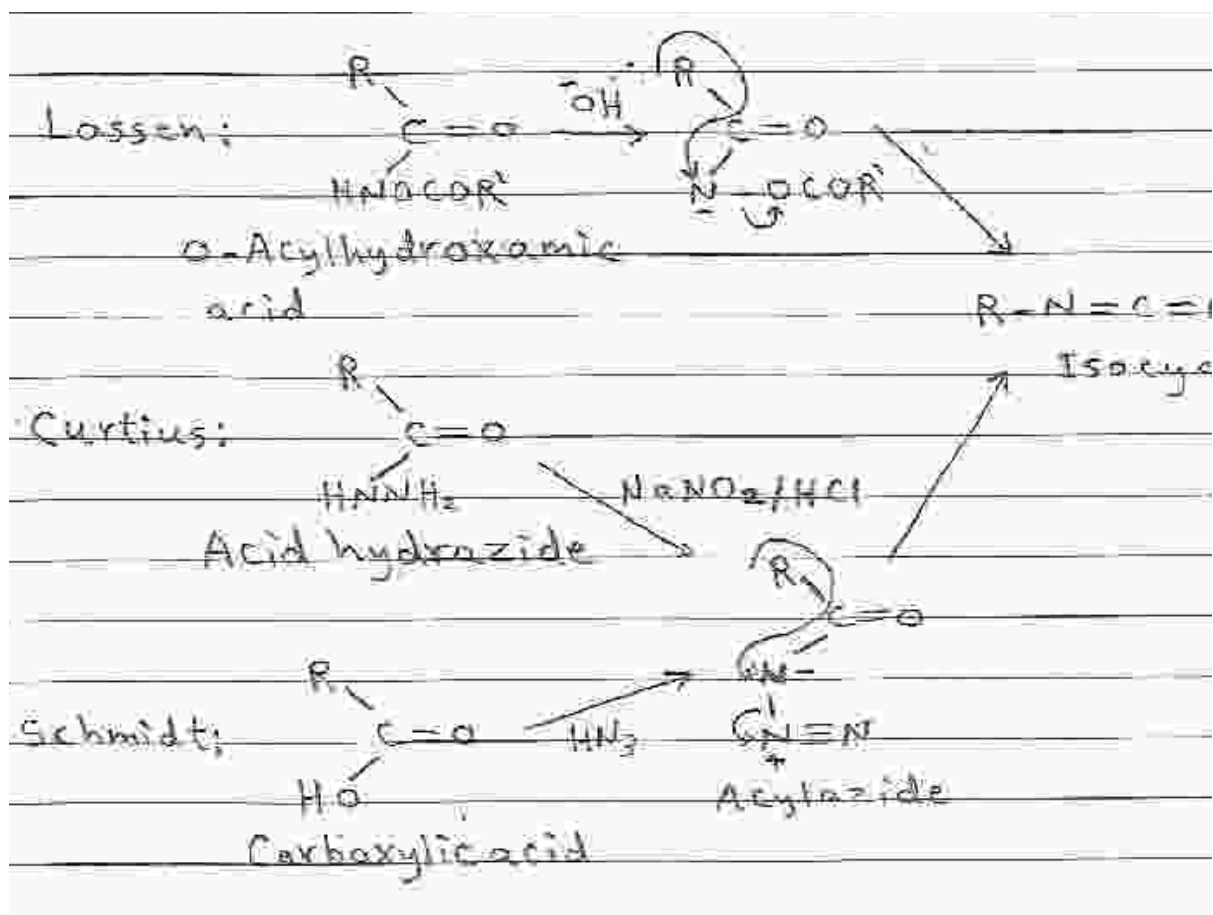 R R
Lossen: C=O -OH C=O
HNOCOR' N-OCOR'
O-Acylhydroxamic
acid
R-N=C=
R Isocya
Curtius: C=O
HNNH2 NaNO2/HCl
Acid hydrazide
R
C=O
R N-
Schmidt: C=O HN3 N≡N
HO + Acylazide
Carboxylic acid